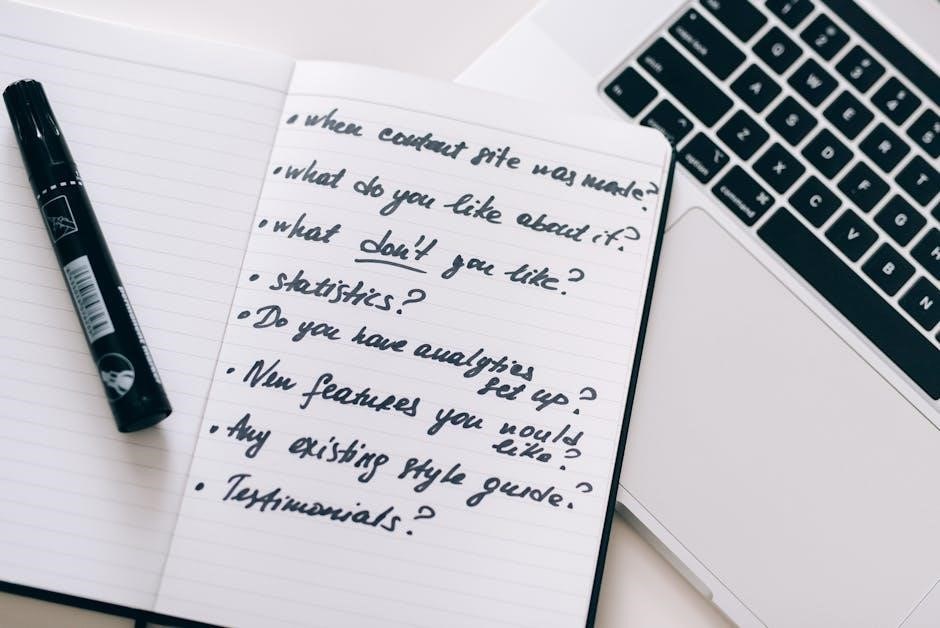 • when content site was made?
• what do you like about it?
• what don't you like?
• statistics?
• Do you have analytics
set up?
• New features you would
like?
• Any existing style guide?
• Testimonials?
Q W E R T
A S D F G
Z X C V B N
fn
option
command